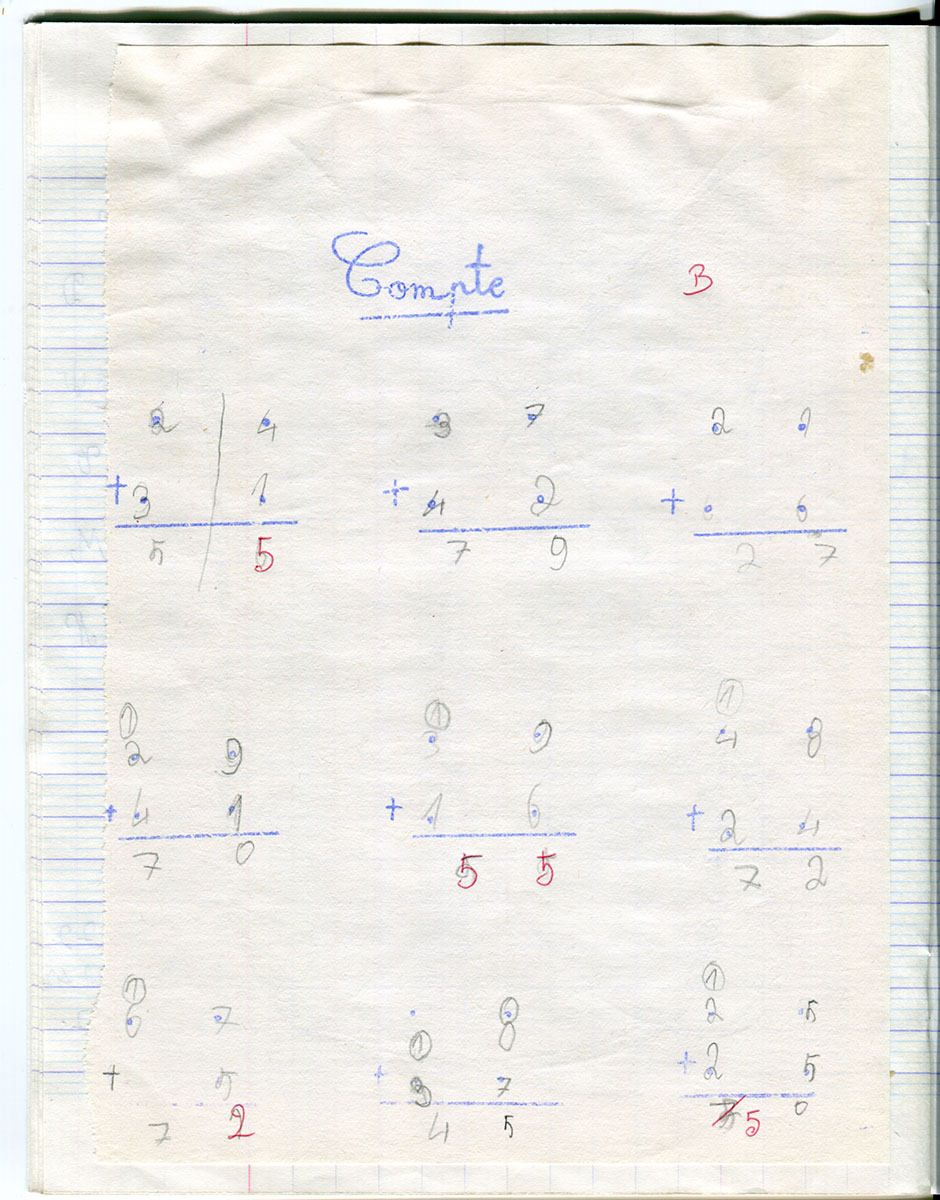 Compte B
2 4 3 7 2 1
+ 3 1 + 4 2 + 6
5 5 7 9 2 7
1 1 1
2 9 3 9 4 8
+ 4 1 + 1 6 + 2 4
7 0 5 5 7 2
1 1
6 7 8 2 5
1
+ 5 + 3 7 + 2 5
7 2 4 5 5 0